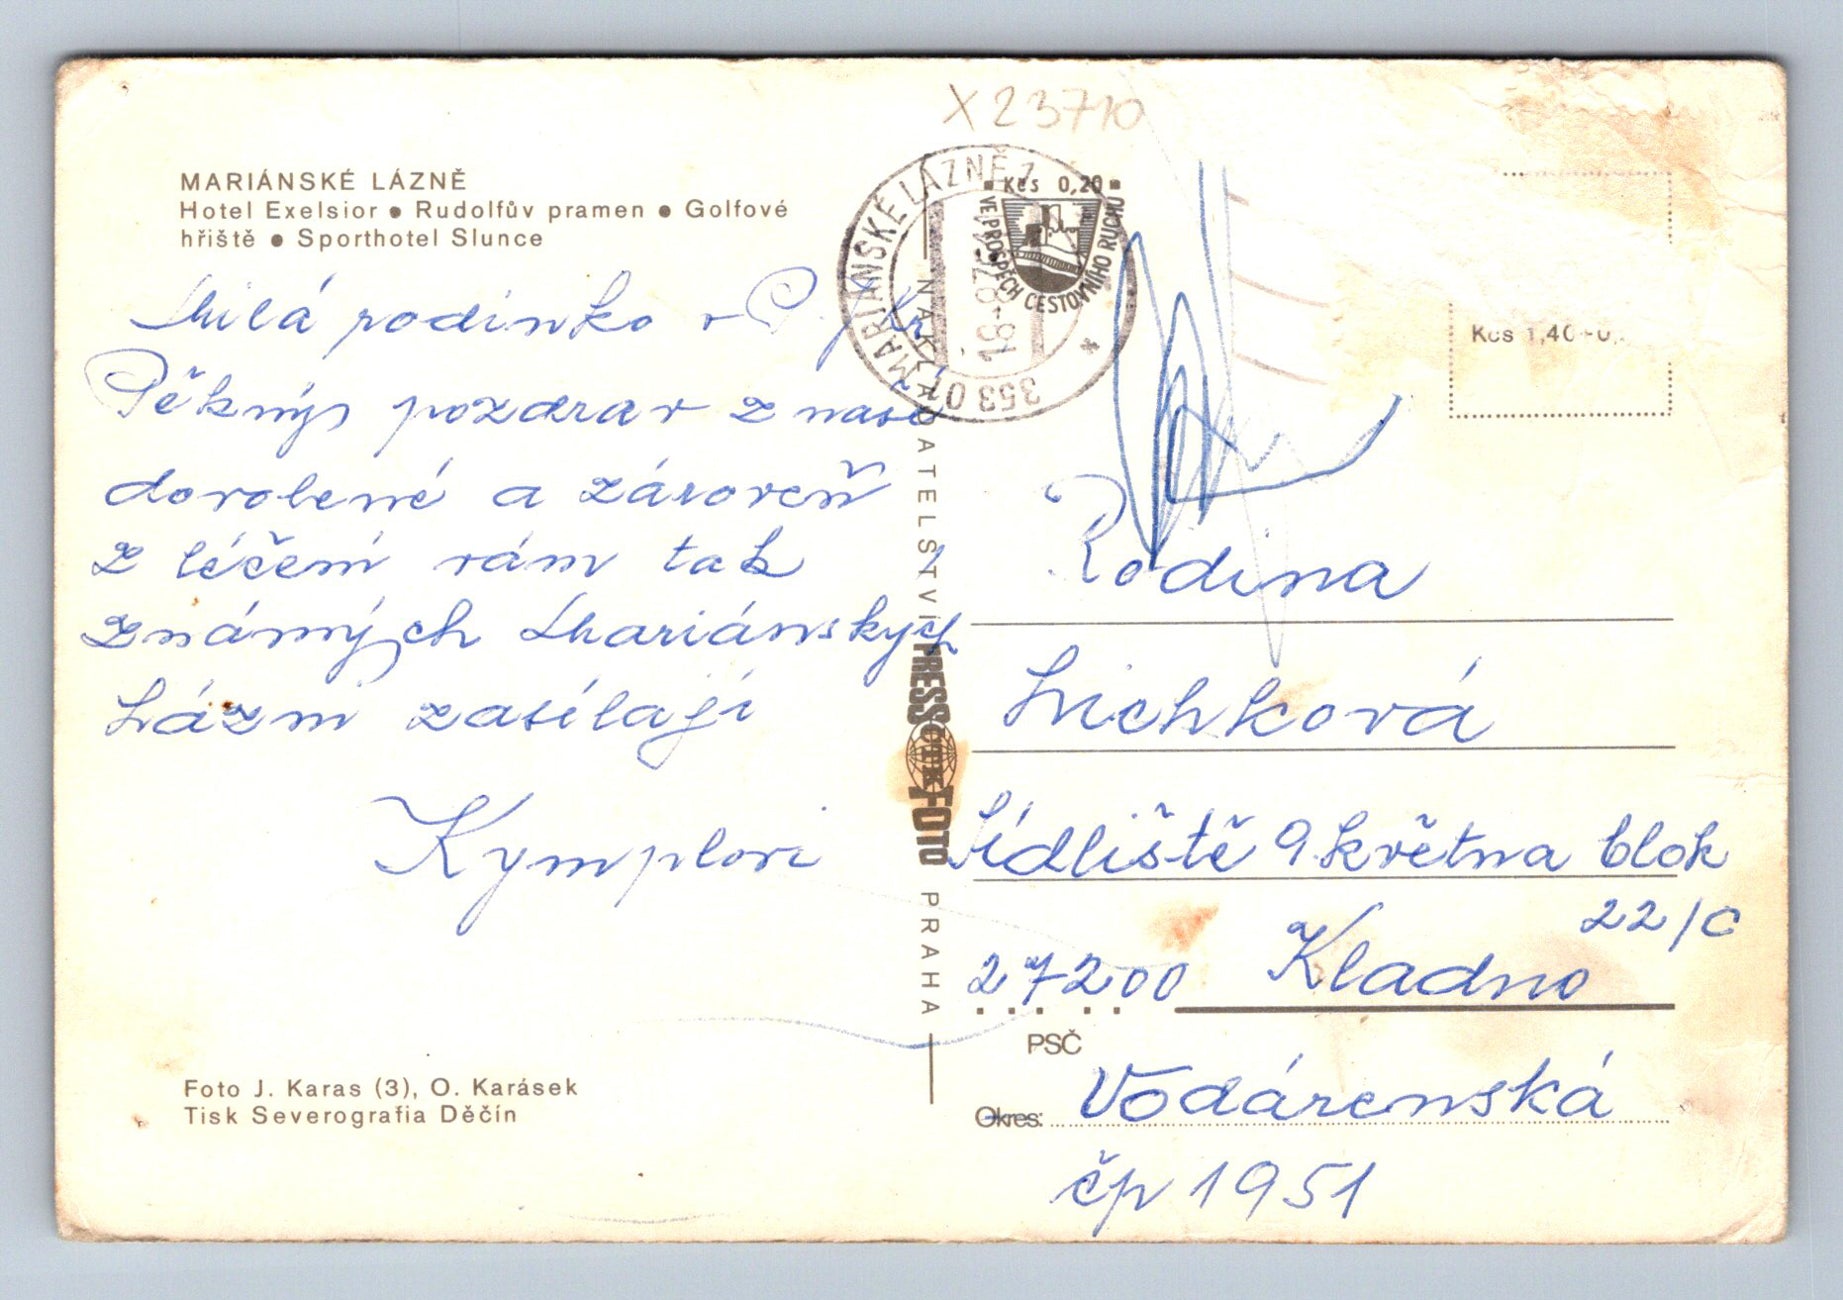 X 23710
MARIÁNSKÉ LÁZNĚ
Hotel Exelsior ● Rudolfův pramen ● Golfové
hřiště ● Sporthotel Slunce
Milá rodinko
Pěkný pozdrav z naší
dovolené a zároveň
z léčení vám tak
známých Mariánských
Lázní zasílají
Kymplovi
Foto J. Karas (3), O. Karásek
Tisk Severografia Děčín
NAKLADATELSTVÍ PRESSFOTO PRAHA
ČTK
MARIÁNSKÉ LÁZNĚ 1
353 01
Kčs 0,20
VE PROSPĚCH CESTOVNÍHO RUCHU
Kčs 1,40
Rodina
Lichková
Sídliště 9. května blok
22/C
27200 Kladno
PSČ
Okres: Vodárenská
čp 1951